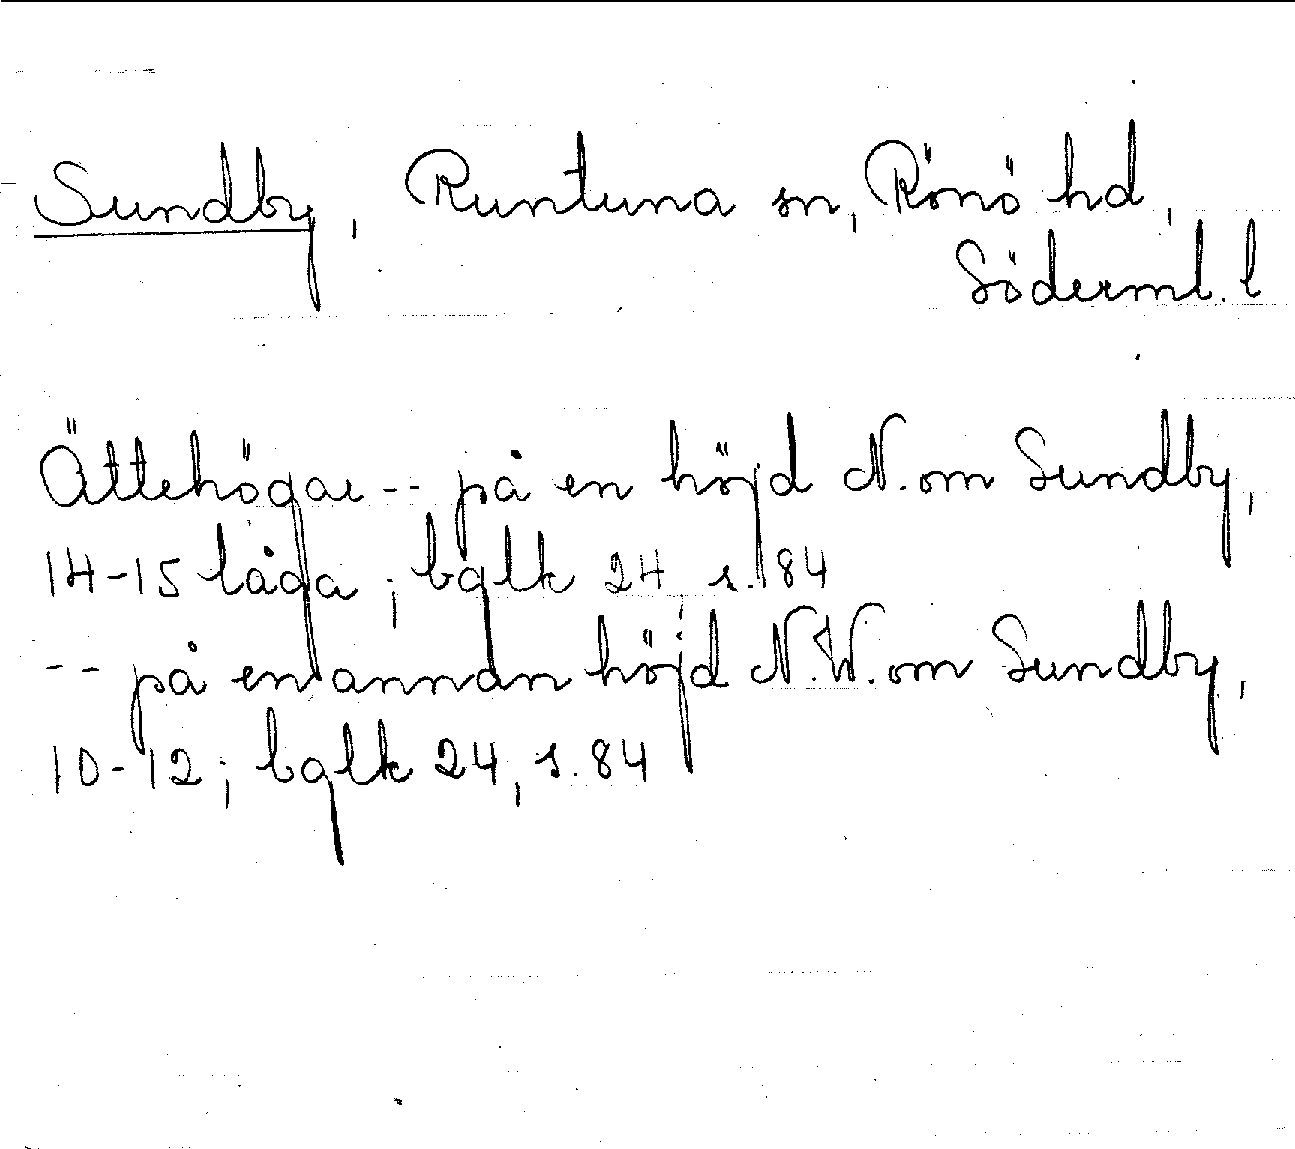 Sundby, Runtuna sn, Rönö hd,
Söderml. l
Ättehögar -- på en höjd N. om Sundby,
14-15 låga; bglk 24 s. 84
-- på en annan höjd N.W. om Sundby,
10-12; bglk 24, s. 84